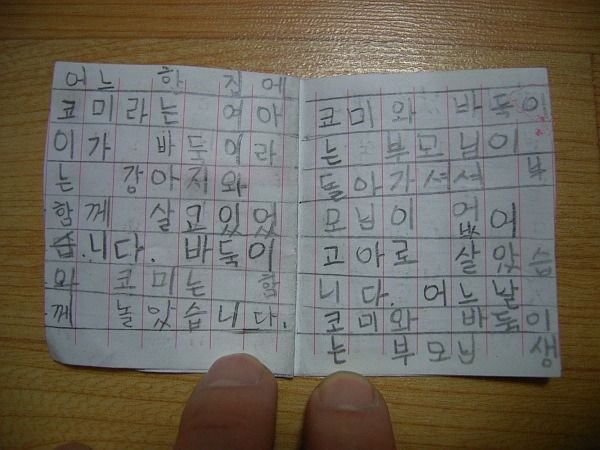 어느 한 집에
코미라는 여아
이가 바둑이라
는 강아지와
함께 살고있었
습니다. 바둑이
와 코미는 함
께 놀았습니다.
코미와 바둑이
는 부모님이
돌아가셔서 부
모님이 없이
고아로 살았습
니다. 어느날
코미와 바둑이
는 부모님 생